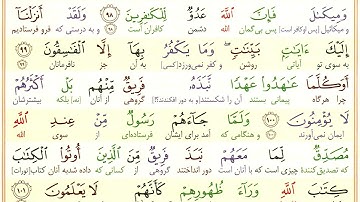 وَمِيكَىٰلَ فَإِنَّ ٱللَّهَ عَدُوٌّ لِّلْكَٰفِرِينَ ٩٨ وَلَقَدْ أَنزَلْنَآ
و میکائیل [پس او کافر است] پس بی‌گمان الله دشمن کافران است و به درستی که فرو فرستادیم
إِلَيْكَ ءَايَٰتٍۭ بَيِّنَٰتٍ وَمَا يَكْفُرُ بِهَآ إِلَّا ٱلْفَٰسِقُونَ ٩٩
به سوی تو آیاتی روشن و کفر نمی‌ورزد [کسی] به آن جز نافرمانان
أَوَكُلَّمَا عَٰهَدُوا۟ عَهْدًا نَّبَذَهُۥ فَرِيقٌ مِّنْهُم بَلْ أَكْثَرُهُمْ
چرا هرگاه پیمانی بستند آن را [شکستند و] به دور افکندند؟! گروهی از آنان [نه] بلکه بیشترشان
لَا يُؤْمِنُونَ ١٠٠ وَلَمَّا جَآءَهُمْ رَسُولٌ مِّنْ عِندِ ٱللَّهِ
ایمان نمی‌آورند و هنگامی که آمد برای ایشان فرستاده‌ای از سوی الله
مُصَدِّقٌ لِّمَا مَعَهُمْ نَبَذَ فَرِيقٌ مِّنَ ٱلَّذِينَ أُوتُوا۟ ٱلْكِتَٰبَ
که تصدیق کننده‌ی چیزی است که با آنان است دور انداختند گروهی از کسانی که داده شدند کتاب آسمانی [تورات]
كِتَٰبَ ٱللَّهِ وَرَآءَ ظُهُورِهِمْ كَأَنَّهُمْ لَا يَعْلَمُونَ ١٠١